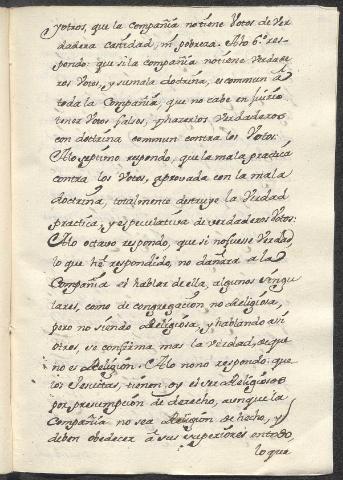 y otros, que la compañia no tiene Votos de Ver
dadera castidad, ni pobreza. Alo 6º res-
pondo: que si la compañia no tiene Verdade
ros Votos, y su mala doctrina, es commun â
toda la Compañia, que no cabe en juicio
tener Votos falsos, y hazerlos Verdaderos
con doctrina commun contra los Votos:
Alo septimo respondo, que la mala practica
contra los Votos, aprovada con la mala
doctrina, totalmente destruye la Verdad
practica, y especulativa de verdaderos Votos:
Alo octavo respondo, que si no fuesse Verdad
lo que hê respondido, no dañara a la
Compañia el hablar de ella, algunos singu
lares, como de congregación no Religiosa,
pero no siendo Religiosa, y hablando assi
otros, se confirma mas la verdad, de que
no es Religion. Alo nono respondo: que
los Jesuitas, tienen oy el ser Religiosos
por presumpcion de derecho, aunque la
Compañia no sea Religion de hecho, y
deben obedecer â sus superiores en todo
lo que